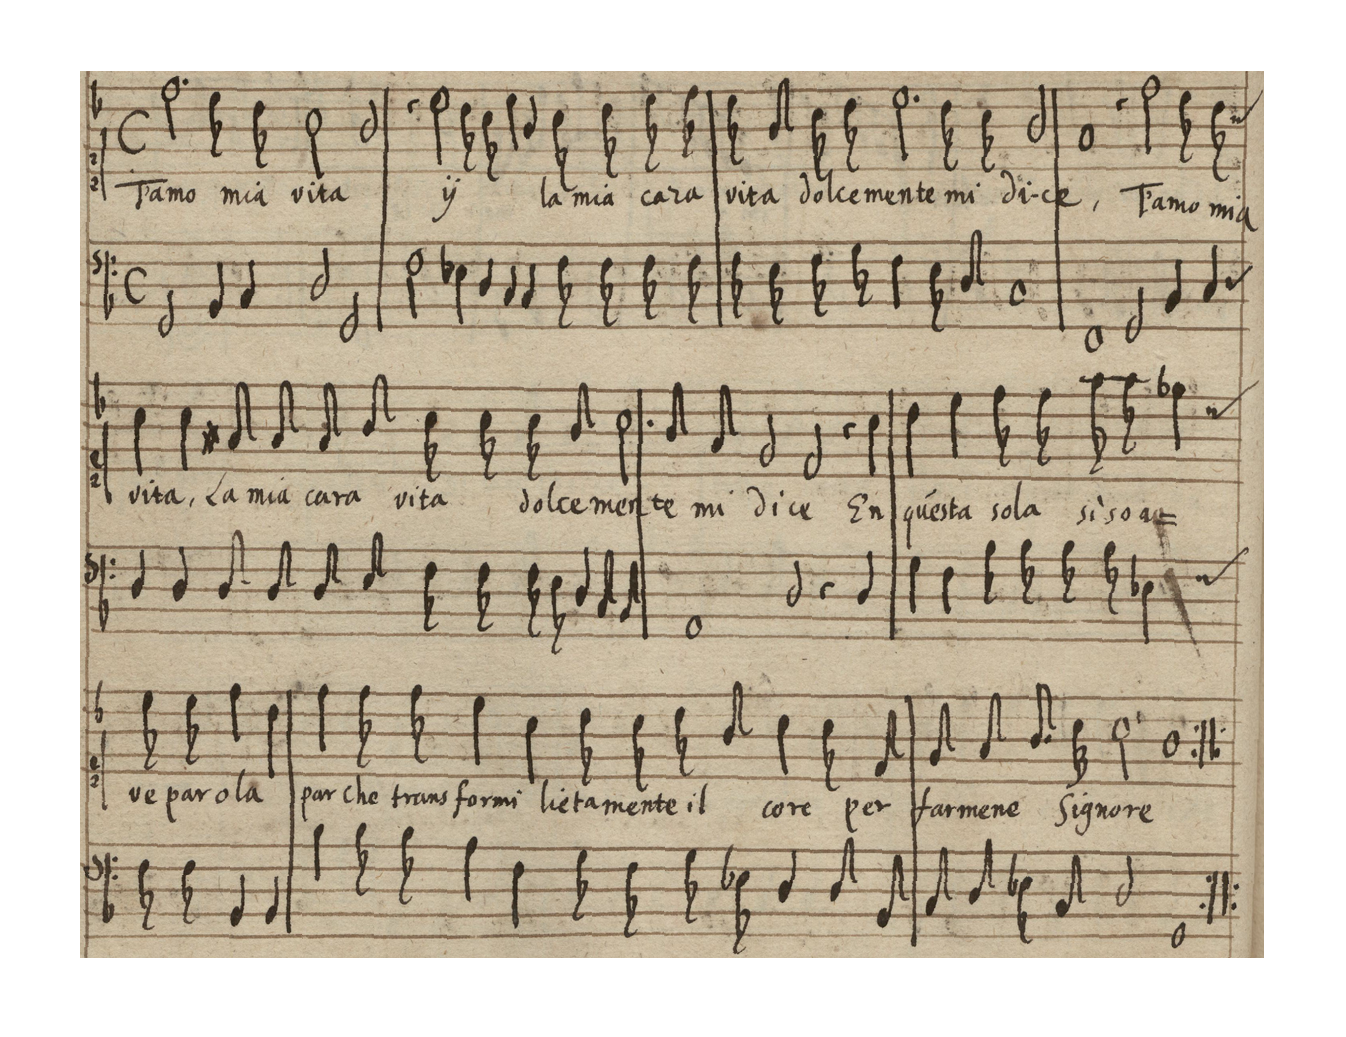 Tamo mia vita ij la mia cara vita dolcemente mi di-ce, Tamo mia
vita, La mia cara vita dolcemente mi dice En questa sola si soa=
ve parola par che transformi lietamente il core per farmene Signore